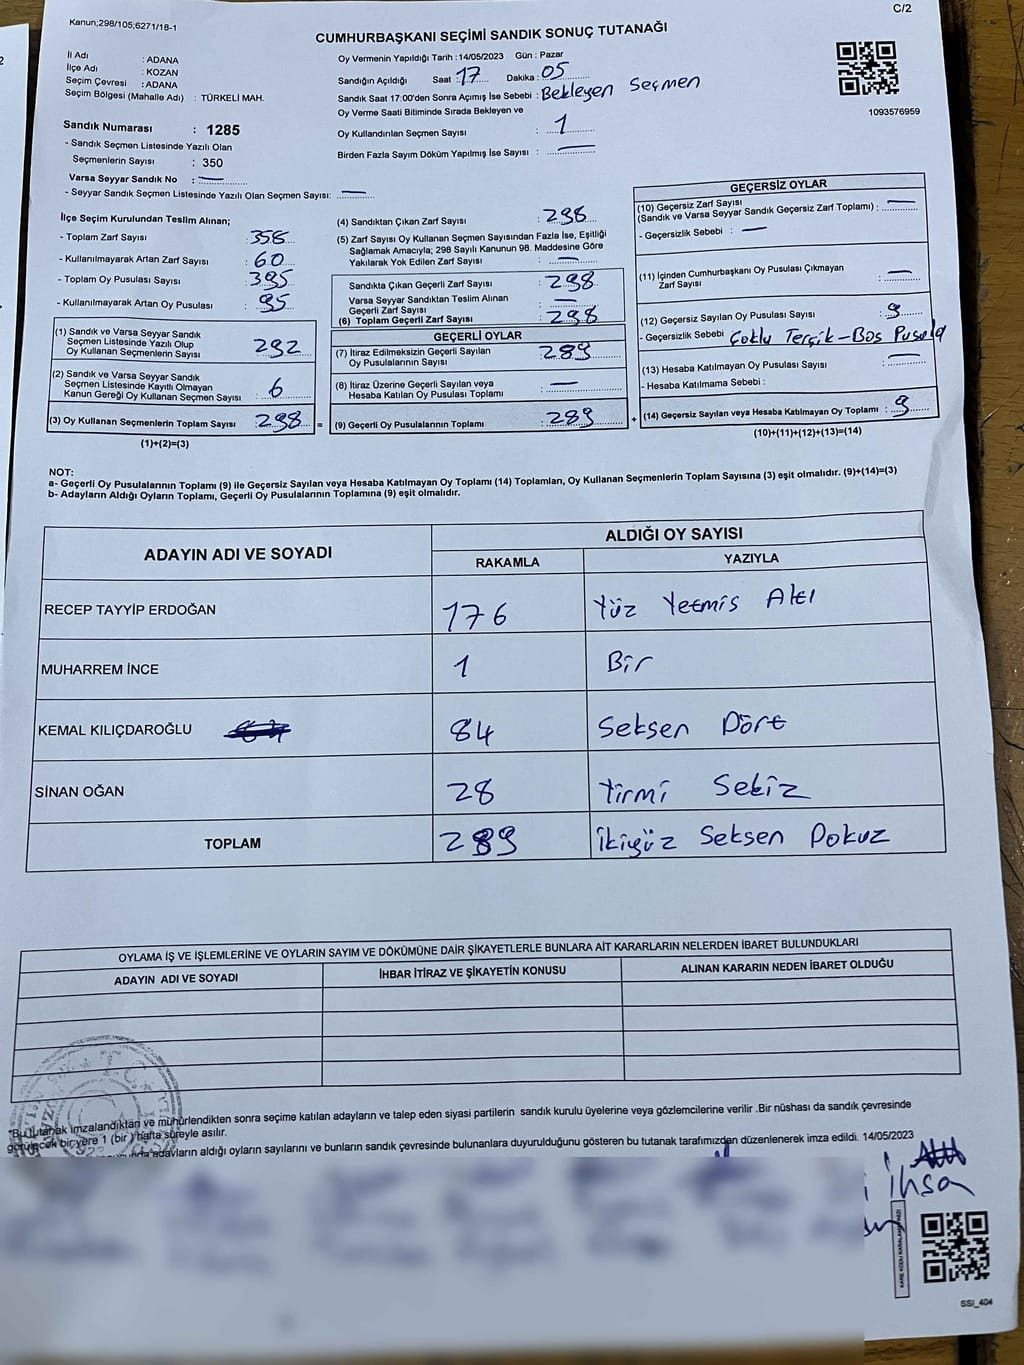 Kanun;298/105;6271/18-1
C/2
CUMHURBAŞKANI SEÇİMİ SANDIK SONUÇ TUTANAĞI
İl Adı : ADANA
İlçe Adı : KOZAN
Seçim Çevresi : ADANA
Seçim Bölgesi (Mahalle Adı) : TÜRKELİ MAH.
Sandık Numarası : 1285
- Sandık Seçmen Listesinde Yazılı Olan
Seçmenlerin Sayısı : 350
Varsa Seyyar Sandık No : —
- Seyyar Sandık Seçmen Listesinde Yazılı Olan Seçmen Sayısı: —
Oy Vermenin Yapıldığı Tarih : 14/05/2023 Gün : Pazar
Sandığın Açıldığı Saat : 17 Dakika : 05
Sandık Saat 17:00'den Sonra Açımış İse Sebebi : Bekleyen Seçmen
Oy Verme Saati Bitiminde Sırada Bekleyen ve
Oy Kullandırılan Seçmen Sayısı : 1
Birden Fazla Sayım Döküm Yapılmış İse Sayısı : —
1093576959
İlçe Seçim Kurulundan Teslim Alınan;
- Toplam Zarf Sayısı : 358
- Kullanılmayarak Artan Zarf Sayısı : 60
- Toplam Oy Pusulası Sayısı : 395
- Kullanılmayarak Artan Oy Pusulası : 95
(1) Sandık ve Varsa Seyyar Sandık
Seçmen Listesinde Yazılı Olup
Oy Kullanan Seçmenlerin Sayısı : 292
(2) Sandık ve Varsa Seyyar Sandık
Seçmen Listesinde Kayıtlı Olmayan
Kanun Gereği Oy Kullanan Seçmen Sayısı : 6
(3) Oy Kullanan Seçmenlerin Toplam Sayısı : 298 =
(1)+(2)=(3)
(4) Sandıktan Çıkan Zarf Sayısı : 298
(5) Zarf Sayısı Oy Kullanan Seçmen Sayısından Fazla İse, Eşitliği
Sağlamak Amacıyla; 298 Sayılı Kanunun 98. Maddesine Göre
Yakılarak Yok Edilen Zarf Sayısı : —
Sandıkta Çıkan Geçerli Zarf Sayısı : 298
Varsa Seyyar Sandıktan Teslim Alınan
Geçerli Zarf Sayısı : —
(6) Toplam Geçerli Zarf Sayısı : 298
GEÇERLİ OYLAR
(7) İtiraz Edilmeksizin Geçerli Sayılan
Oy Pusulalarının Sayısı : 289
(8) İtiraz Üzerine Geçerli Sayılan veya
Hesaba Katılan Oy Pusulası Toplamı : —
(9) Geçerli Oy Pusulalarının Toplamı : 289 +
GEÇERSİZ OYLAR
(10) Geçersiz Zarf Sayısı
(Sandık ve Varsa Seyyar Sandık Geçersiz Zarf Toplamı) : —
- Geçersizlik Sebebi : —
(11) İçinden Cumhurbaşkanı Oy Pusulası Çıkmayan
Zarf Sayısı : —
(12) Geçersiz Sayılan Oy Pusulası Sayısı : 9
- Geçersizlik Sebebi : Çoklu Terçik-Boş Pusula
(13) Hesaba Katılmayan Oy Pusulası Sayısı : —
- Hesaba Katılmama Sebebi :
(14) Geçersiz Sayılan veya Hesaba Katılmayan Oy Toplamı : 9
(10)+(11)+(12)+(13)=(14)
NOT:
a- Geçerli Oy Pusulalarının Toplamı (9) ile Geçersiz Sayılan veya Hesaba Katılmayan Oy Toplamı (14) Toplamları, Oy Kullanan Seçmenlerin Toplam Sayısına (3) eşit olmalıdır. (9)+(14)=(3)
b- Adayların Aldığı Oyların Toplamı, Geçerli Oy Pusulalarının Toplamına (9) eşit olmalıdır.
ADAYIN ADI VE SOYADI
ALDIĞI OY SAYISI
RAKAMLA YAZIYLA
RECEP TAYYİP ERDOĞAN 176 Yüz Yetmiş Altı
MUHARREM İNCE 1 Bir
KEMAL KILIÇDAROĞLU 84 Seksen Dört
SİNAN OĞAN 28 Yirmi Sekiz
TOPLAM 289 İkiyüz Seksen Dokuz
OYLAMA İŞ VE İŞLEMLERİNE VE OYLARIN SAYIM VE DÖKÜMÜNE DAİR ŞİKAYETLERLE BUNLARA AİT KARARLARIN NELERDEN İBARET BULUNDUKLARI
ADAYIN ADI VE SOYADI İHBAR İTİRAZ VE ŞİKAYETİN KONUSU ALINAN KARARIN NEDEN İBARET OLDUĞU
"Bu tutanak imzalandıktan ve mühürlendikten sonra seçime katılan adayların ve talep eden siyasi partilerin sandık kurulu üyelerine veya gözlemcilerine verilir .Bir nüshası da sandık çevresinde
görülecek bir yere 1 (bir) hafta süreyle asılır.
adayların aldığı oyların sayılarını ve bunların sandık çevresinde bulunanlara duyurulduğunu gösteren bu tutanak tarafımızdan düzenlenerek imza edildi. 14/05/2023
İhsa
SSI_404